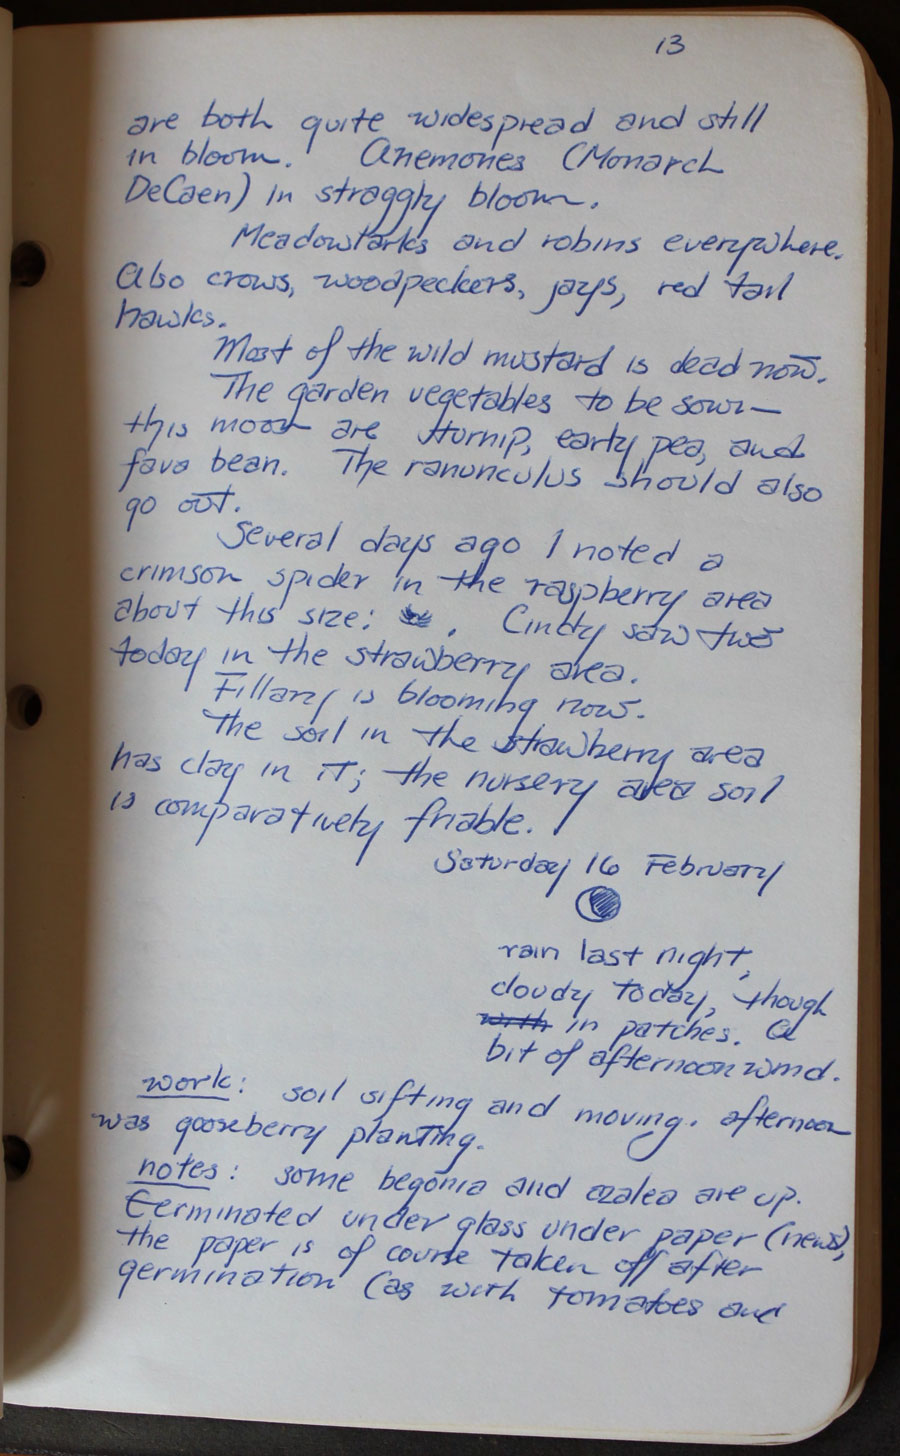 13
are both quite widespread and still
in bloom. Anemones (Monarch
DeCaen) in straggly bloom.
Meadowlarks and robins everywhere.
Also crows, woodpeckers, jays, red tail
hawks.
Most of the wild mustard is dead now.
The garden vegetables to be sown
this moon are turnip, early pea, and
fava bean. The ranunculus should also
go out.
Several days ago I noted a
crimson spider in the raspberry area
about this size: . Cindy saw two
today in the strawberry area.
Fillary is blooming now.
The soil in the strawberry area
has clay in it; the nursery area soil
is comparatively friable.
Saturday 16 February
rain last night,
cloudy today, though
with in patches. A
bit of afternoon wind.
work: soil sifting and moving. afternoon
was gooseberry planting.
notes: some begonia and azalea are up.
Germinated under glass under paper (news),
the paper is of course taken off after
germination (as with tomatoes and